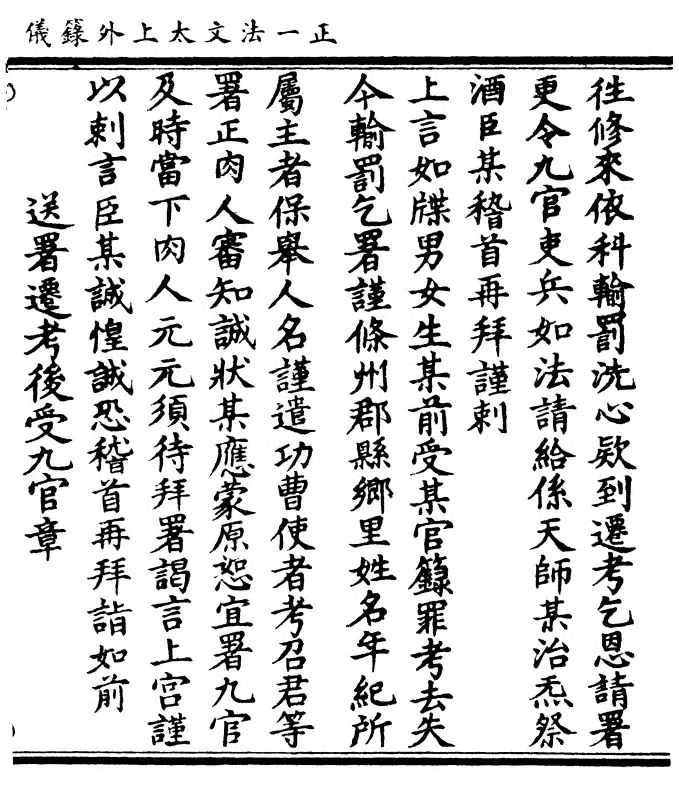 正一法文太上外籙儀
徃修來依科輸罰洗心欵到遷考乞恩請署
更令九官吏兵如法請給係天師某治炁祭
酒臣某稽首再拜謹刺
上言如牒男女生某前受某官籙罪考去失
今輸罰乞署謹條州郡縣鄉里姓名年紀所
屬主者保舉人名謹遣功曹使者考召君等
署正肉人審知誠狀某應蒙原恕宜署九官
及時當下肉人元元須待拜署謁言上宫謹
以刺言臣某誠惶誠恐稽首再拜詣如前
送署遷考後受九官章